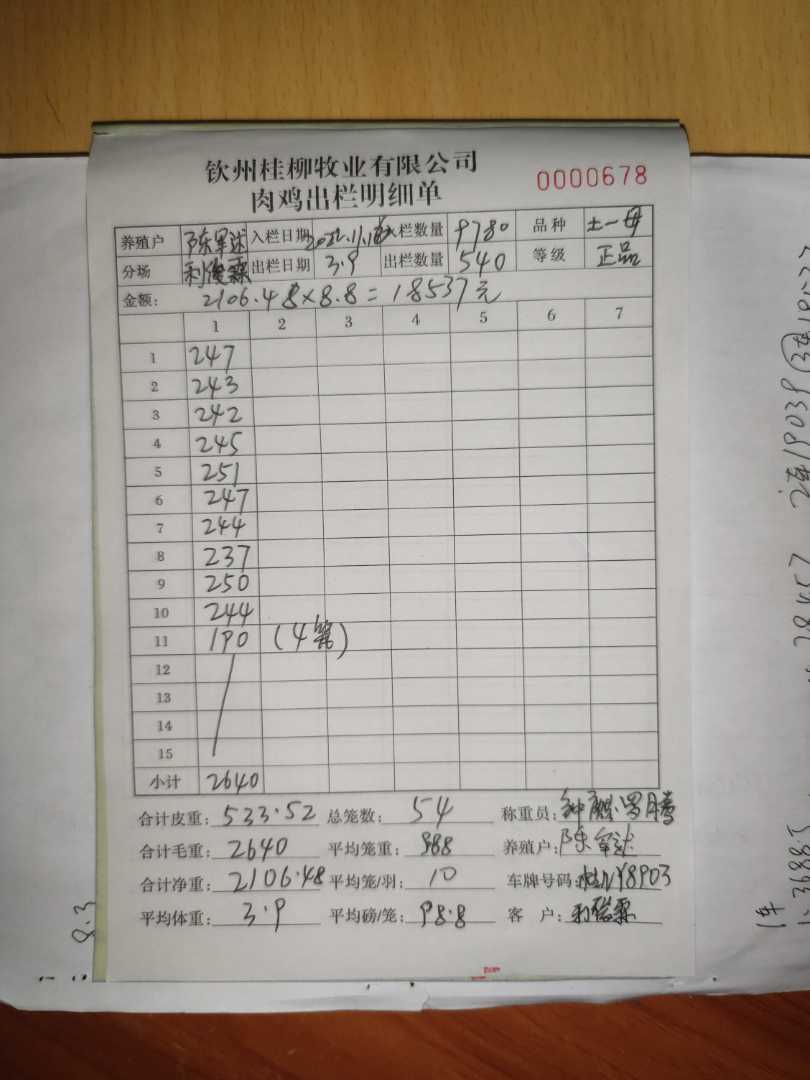 钦州桂柳牧业有限公司
肉鸡出栏明细单 0000678
养殖户 陈军述 入栏日期 入栏数量 9780 品种 土一母
分场 利俊霖 出栏日期 3.9 出栏数量 540 等级 正品
金额: 2106.48×8.8=18537元
1 2 3 4 5 6 7
1 247
2 243
3 242
4 245
5 251
6 247
7 244
8 237
9 250
10 244
11 190 (4笼)
12
13
14
15
小计 2640
合计皮重: 533.52 总笼数: 54 称重员:
合计毛重: 2640 平均笼重: 988 养殖户: 陈军述
合计净重: 2106.48 平均笼/羽: 10 车牌号码: Y8903
平均体重: 3.9 平均磅/笼: 98.8 客户: 利俊霖
8.3
2车19039
28457
1车
3688.5